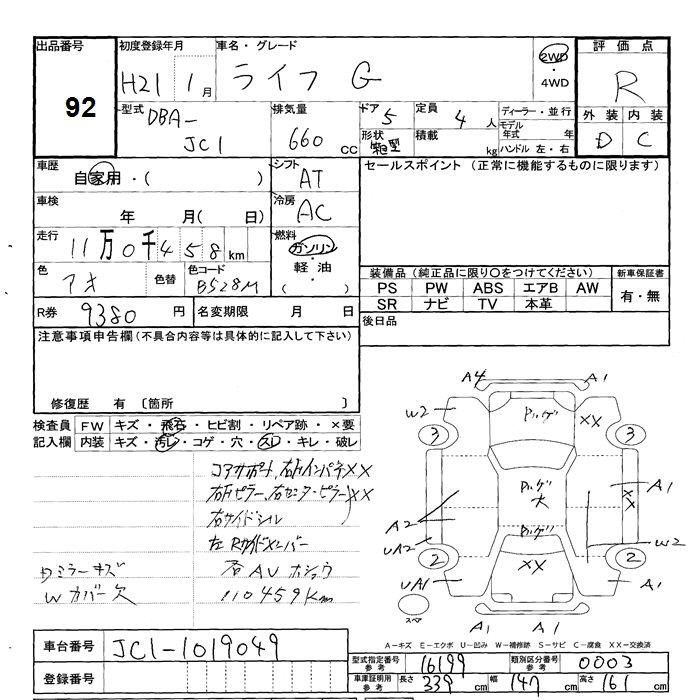 出品番号
92
初度登録年月
H21 1月
車名・グレード
ライフ G
2WD
・
4WD
評価点
R
外装 内装
D C
型式
DBA-
JC1
排気量
660 cc
ドア 5
形状 箱型
定員 4 人
積載 kg
ディーラー・並行
モデル年式 年
ハンドル 左・右
車歴
自家用・( )
シフト
AT
セールスポイント (正常に機能するものに限ります)
車検
年 月( 日)
冷房
AC
走行
11万0千458km
燃料
ガソリン
・
軽油
・
( )
色
アオ
色替
色コード
B528M
装備品(純正品に限り○をつけてください)
新車保証書
PS PW ABS エアB AW
有・無
SR ナビ TV 本革
R券 9380 円
名変期限 月 日
後日品
注意事項申告欄(不具合内容等は具体的に記入して下さい)
修復歴 有 〔箇所 〕
検査員記入欄
FW キズ・飛石・ヒビ割・リペア跡・×要
内装 キズ・汚レ・コゲ・穴・スレ・キレ・破レ
コアサポート、右Fインパネ××
右Fピラー、右センターピラー××
右サイドシル
左Rサイドメンバー
Dミラーキズ
Wカバー欠
110459Km
A4
A1
W2
ルーフ
XX
3
3
大
XX
A1
A2
UA2
W2
2
2
XX
UA1
A1
スペア
A1
A1
A-キズ E-エクボ U-凹み W-補修跡 S-サビ C-腐食 XX-交換済
車台番号
JC1-1019049
登録番号
型式指定番号
参考
16199
類別区分番号
参考
0003
車庫証明用
参考
長さ 339 cm 幅 147 cm 高さ 161 cm